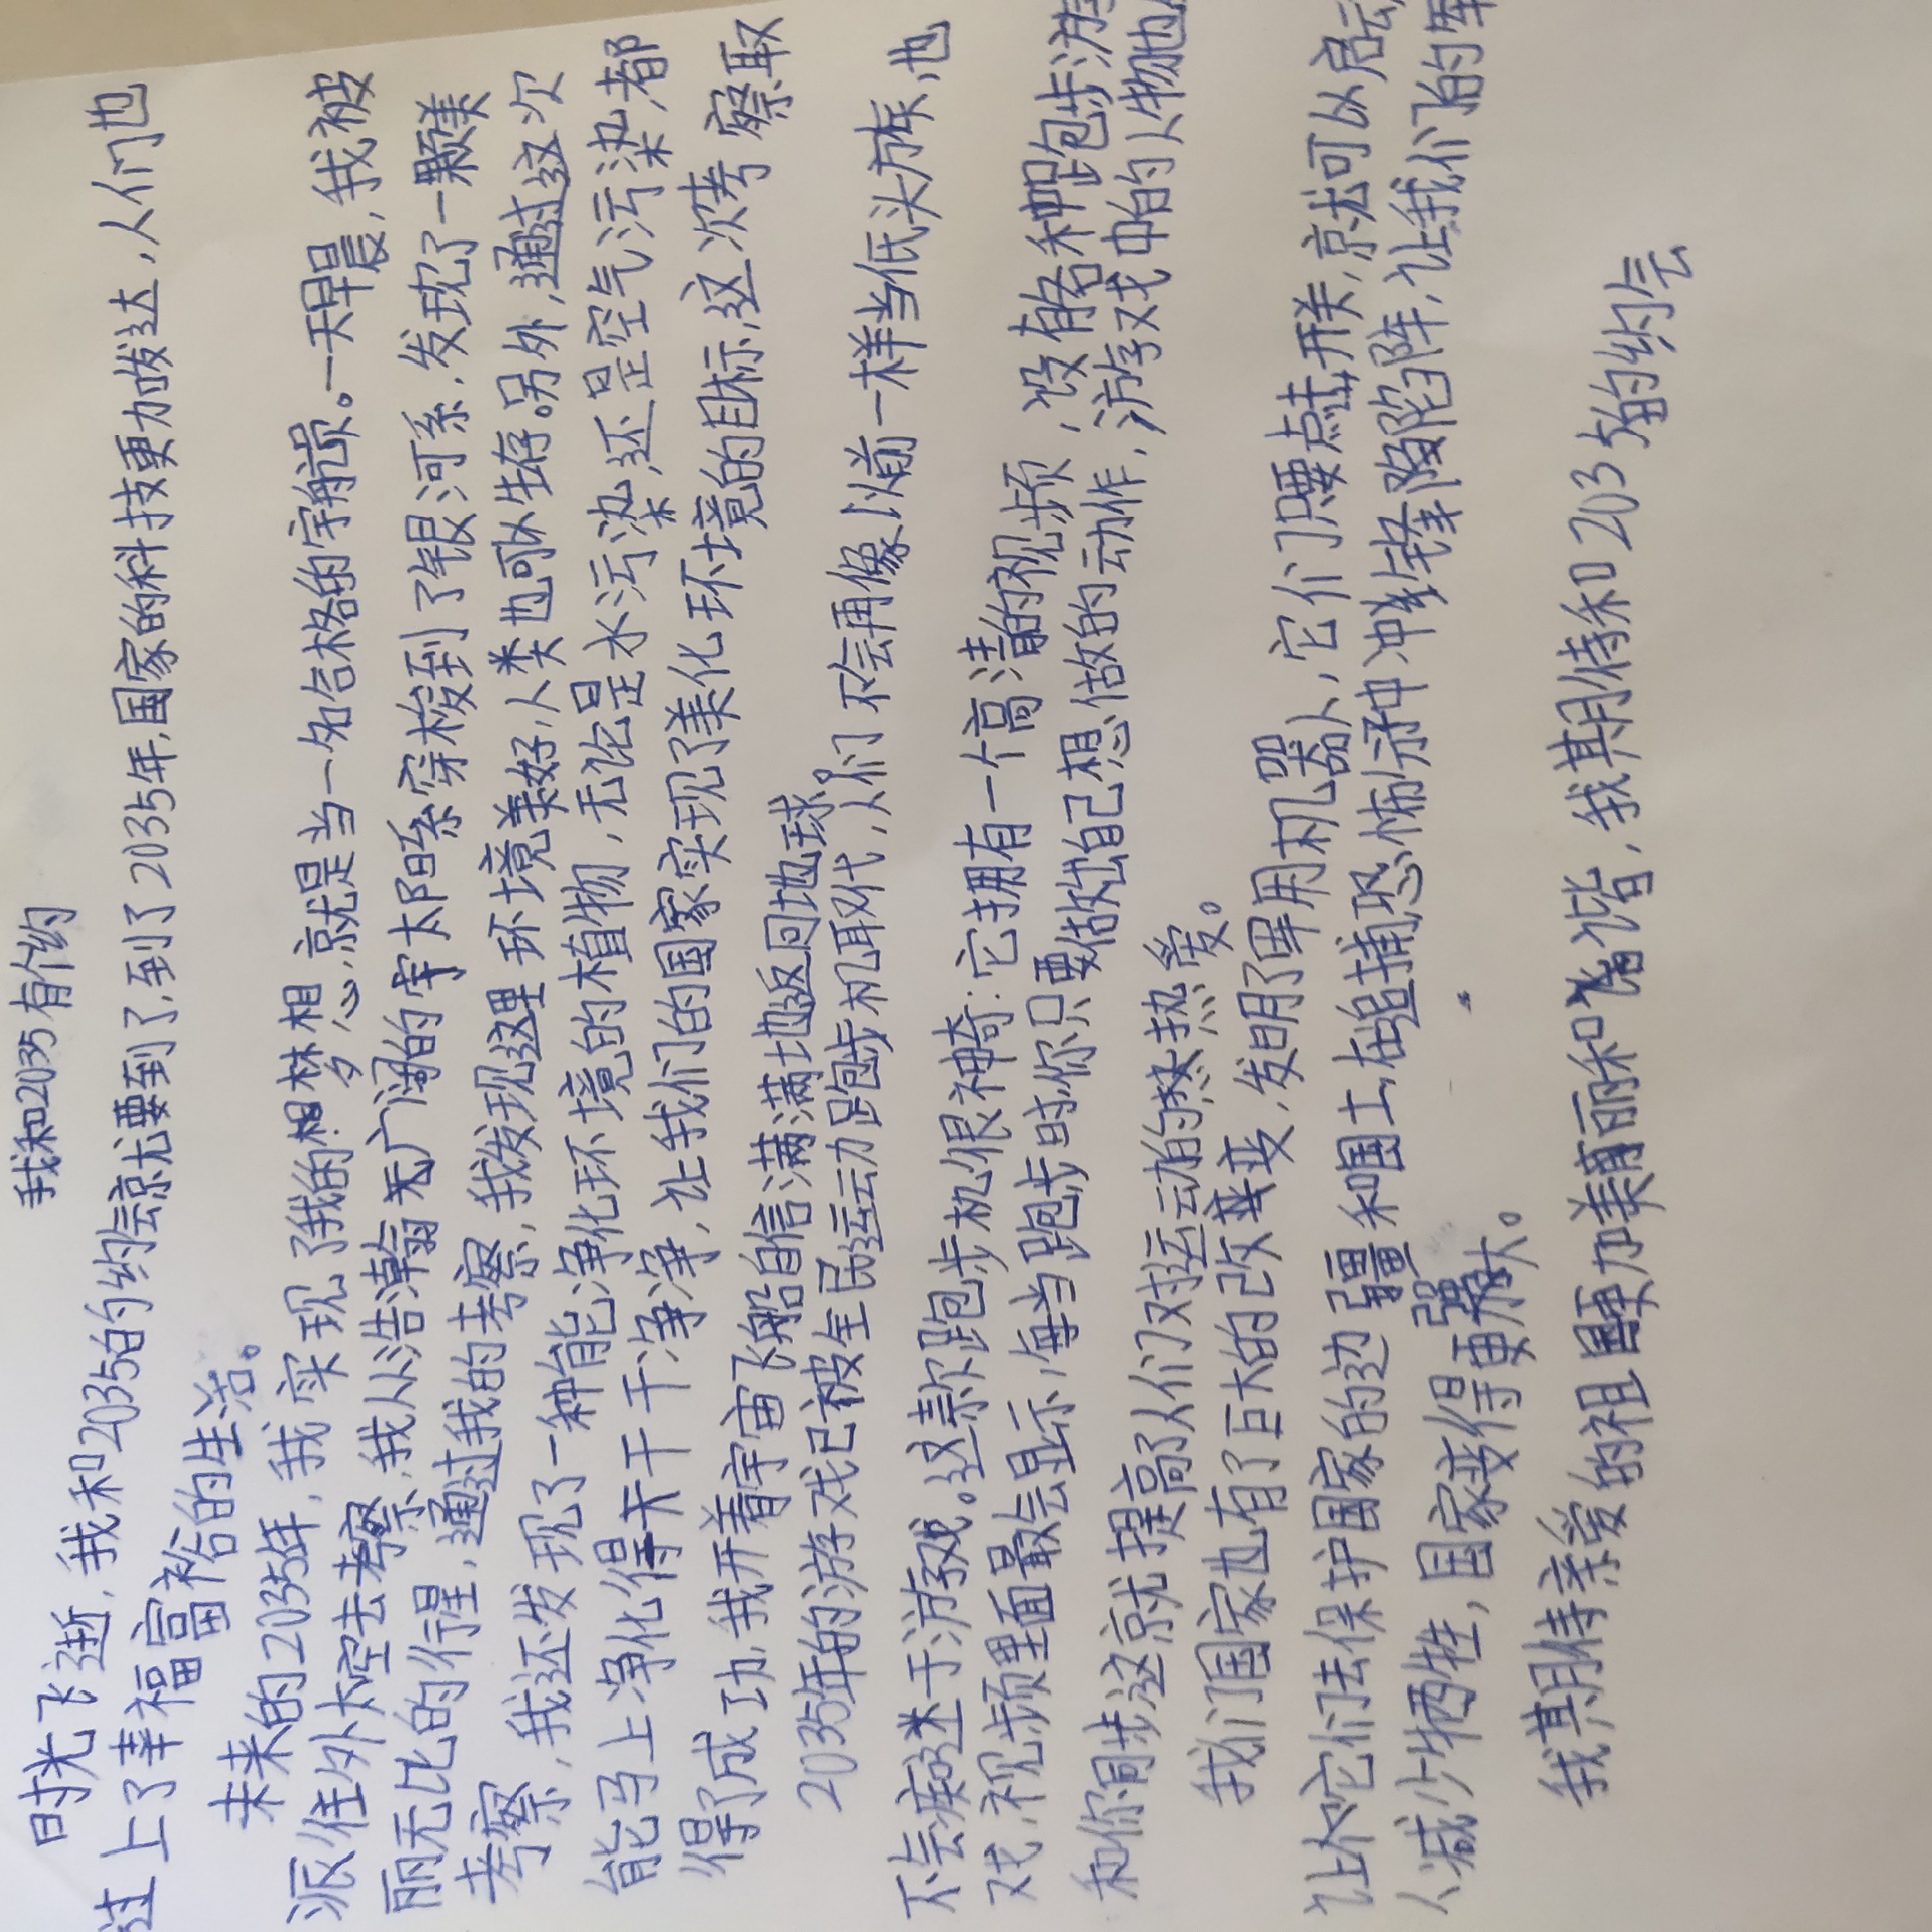 我和2035有个约
时光飞逝，我和2035的约会就要到了，到了2035年，国家的科技更加发达，人们也
过上了幸福富裕的生活。
未来的2035年，我实现了我的梦想，就是当一名合格的宇航员。一天早晨，我被
派往外太空去考察，我从浩瀚无广阔的宇太阳系穿梭到了银河系，发现了一颗美
丽无比的行星，通过我的考察，我发现这里环境美好，人类也可以生存。另外，通过这次
考察，我还发现了一种能净化环境的植物，无论是水污染，还是空气污染，都
能马上净化得干干净净，让我们的国家实现了美化环境的目标，这次考察取
得了成功，我开着宇宙飞船自信满满地返回地球。
2035年的游戏已被全民运动跑步机取代，人们不会再像以前一样当低头族，也
不会痴迷于游戏。这款跑步机很神奇：它拥有一个高清的视频，设有各种跑步游
戏，视频里面最会显示，每当跑步时，你只要做出自己想做的动作，游戏中的人物也
和你同步，这就提高了人们对运动的热爱。
我们国家也有了巨大的改变，发明了军用机器人，它们只要点击开关，就可以启动
让它们去保护国家的边疆和国土，在追捕恐怖分子中冲锋陷阵，让我们的军
人减少牺牲，国家变得更加强大。
我期待亲爱的祖国更加美丽和谐，我期待和203 的约会